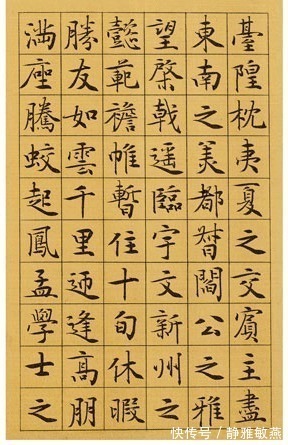 臺隍枕夷夏之交賓主盡
東南之美都督閻公之雅
望棨戟遥臨宇文新州之
懿範襜帷暫住十旬休暇
勝友如雲千里迎逢高朋
満座騰蛟起鳳孟學士之
快传号/静雅敏燕